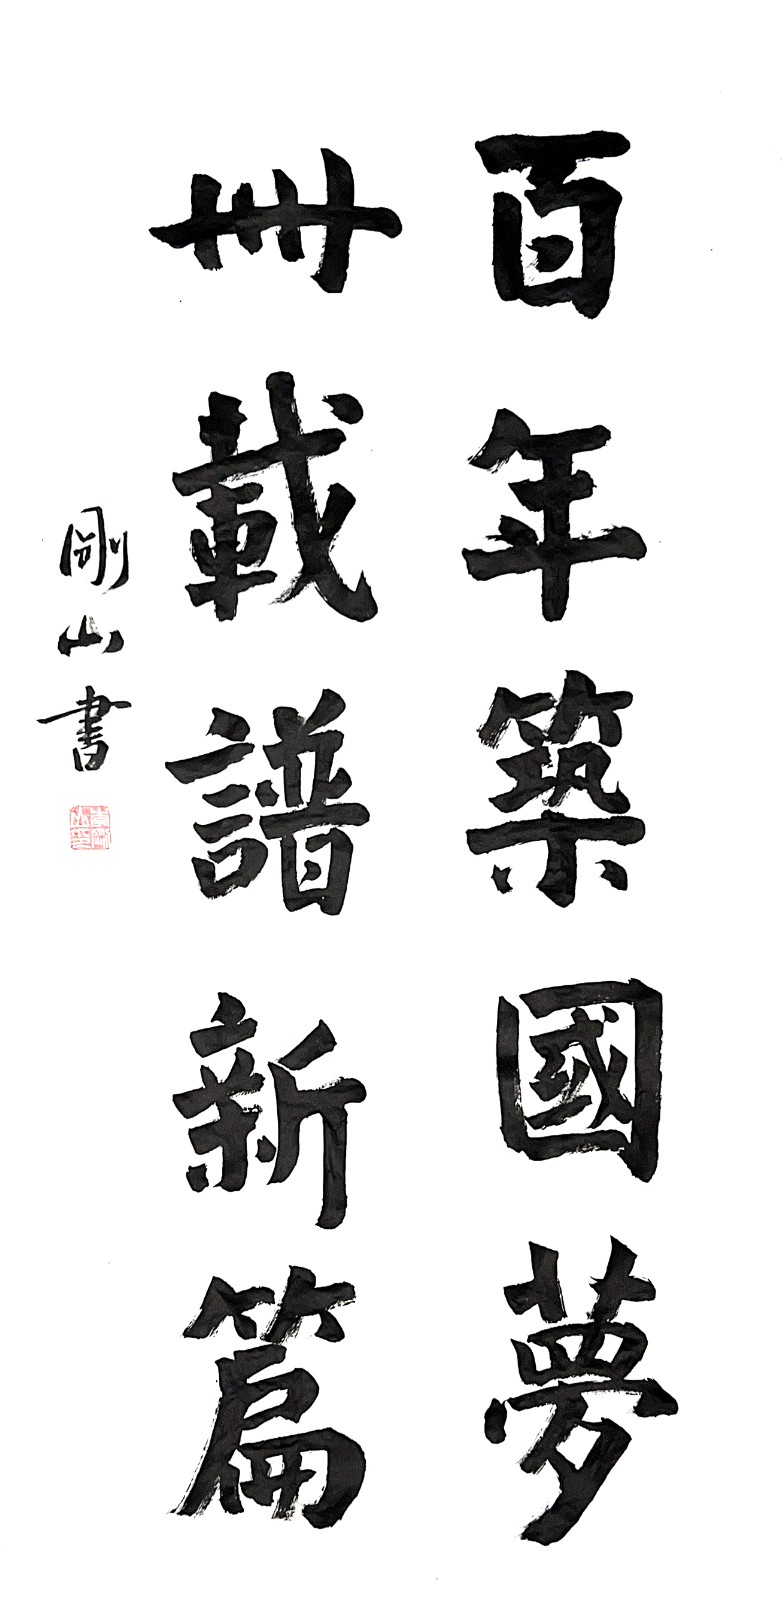 百年築國夢
卌載譜新篇
剛山書